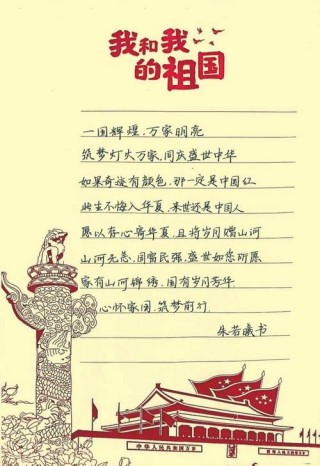 我和我
的祖国
一国辉煌，万家明亮
筑梦灯火万家，同庆盛世中华
如果奇迹有颜色，那一定是中国红
此生不悔入华夏，来世还是中国人
愿以寸心寄华夏，且将岁月赠山河
山河无恙，国富民强，盛世如您所愿
家有山河锦绣，国有岁月芳华
心怀家国，筑梦前行
朱若曦书
中华人民共和国万岁